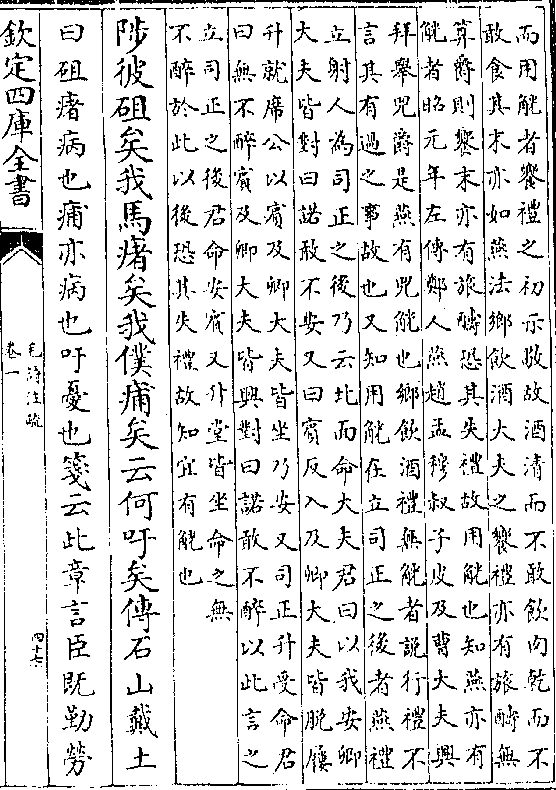 而用觥者饗禮之初示敬故酒清而不敢飲肉乾而不
敢食其末亦如燕法鄉飲酒大夫之饗禮亦有旅酬無
算爵則饗末亦有旅酬恐其失禮故用觥也知燕亦有
觥者昭元年左傳鄭人燕趙孟穆叔子皮及曹大夫興
拜舉兕爵是燕有兕觥也鄉飲酒禮無觥者說行禮不
言其有過之事故也又知用觥在立司正之後者燕禮
立射人為司正之後乃云北面命大夫君曰以我安卿
大夫皆對曰諾敢不安又曰賓反入及卿大夫皆脫屨
升就席公以賓及卿大夫皆坐乃安又司正升受命君
曰無不醉賓及卿大夫皆興對曰諾敢不醉以此言之
立司正之後君命安賓又升堂皆坐命之無
不醉於此以後恐其失禮故知宜有觥也
陟彼砠矣我馬瘏矣我僕痡矣云何吁矣傳石山戴土
曰砠瘏病也痡亦病也吁憂也箋云此章言臣既勤勞
欽定四庫全書
毛詩注疏
卷一
四十六